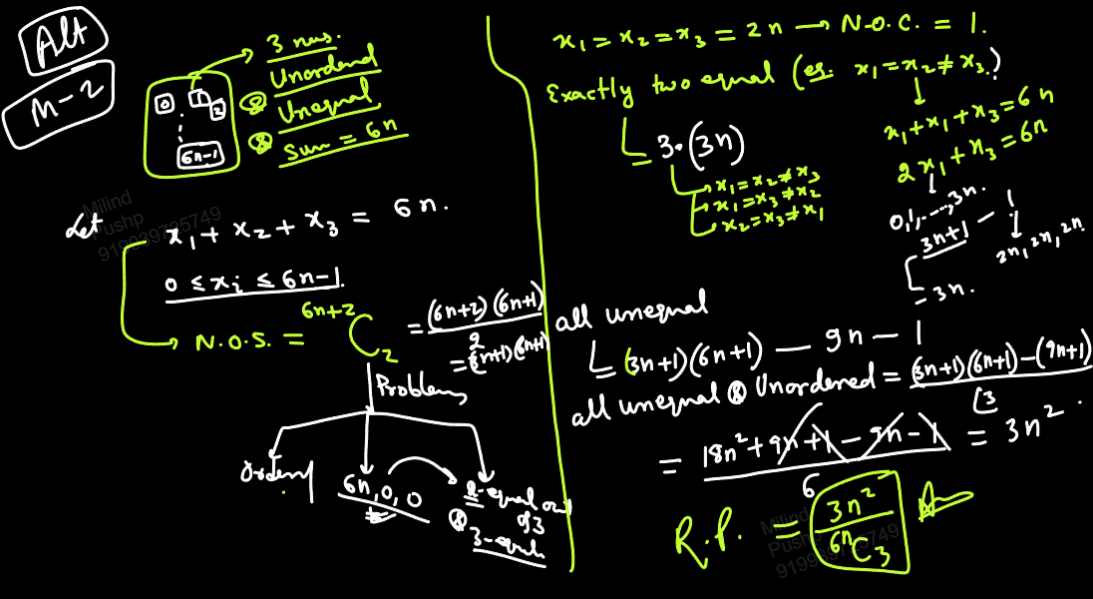 Alt
M-2
0
1
2
6n-1
3 nos.
Unordered
& Unequal
& Sum = 6n
Let
x₁ + x₂ + x₃ = 6n.
0 ≤ xᵢ ≤ 6n-1.
N.O.S. = ⁶ⁿ⁺²C₂ = (6n+2)(6n+1)/2
= (3n+1)(6n+1)
Problems
Ordering
6n, 0, 0
2-equal out of 3
& 3-equal
Milind
Pushp
x₁ = x₂ = x₃ = 2n → N.O.C. = 1.
Exactly two equal (eg. x₁ = x₂ ≠ x₃.)
3.(3n)
x₁ = x₂ ≠ x₃
x₁ = x₃ ≠ x₂
x₂ = x₃ ≠ x₁
x₁ + x₁ + x₃ = 6n
2x₁ + x₃ = 6n
0, 1, ---, 3n.
3n+1 - 1
2n, 2n, 2n
= 3n.
all unequal
(3n+1)(6n+1) - 9n - 1
all unequal & Unordered = (3n+1)(6n+1)-(9n+1)/⌊3
= 18n² + 9n + 1 - 9n - 1/6 = 3n².
R.P. = 3n²/⁶ⁿC₃ Ans
Milind
Pushp